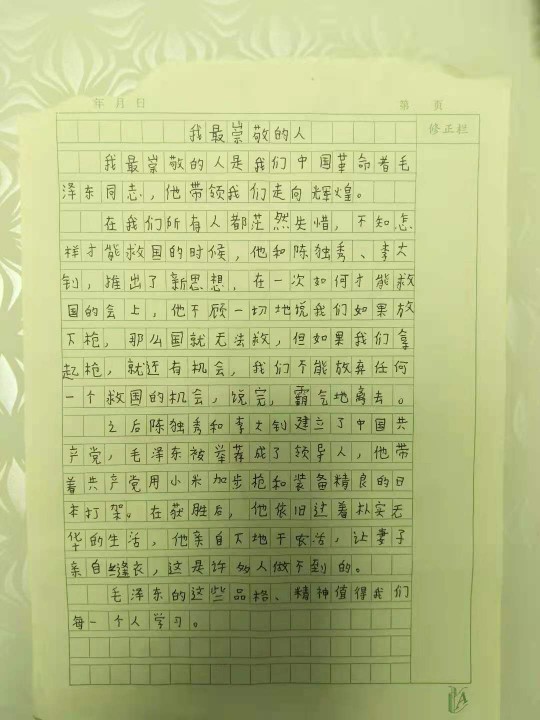 年 月 日
第 页
修正栏
我最崇敬的人
我最崇敬的人是我们中国革命者毛
泽东同志,他带领我们走向辉煌。
在我们所有人都茫然失惜,不知怎
样才能救国的时候,他和陈独秀、李大
钊,推出了新思想,在一次如何才能救
国的会上,他不顾一切地说我们如果放
下枪,那么国就无法救,但如果我们拿
起枪,就还有机会,我们不能放弃任何
一个救国的机会,说完,霸气地离去。
之后陈独秀和李大钊建立了中国共
产党,毛泽东被举荐成了领导人,他带
着共产党用小米加步枪和装备精良的日
本打架。在获胜后,他依旧过着朴实无
华的生活,他亲自下地干农活,让妻子
亲自缝衣,这是许多人做不到的。
毛泽东的这些品格、精神值得我们
每一个人学习。